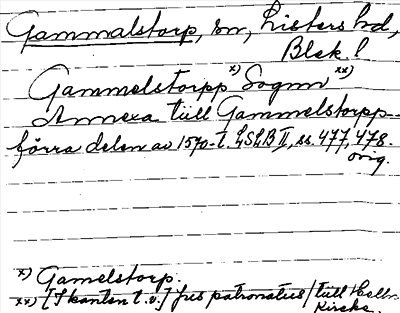 Gammalstorp, sn, Listers hd,
Blek. l.
Gammelstorpp x) Sognn xx)
Annexa till Gammelstorpp.-
förra delen av 1570-t. LSLB II, ss. 477, 478.
orig.
x) Gamelstorp.
xx) [I kanten t.v.] Jus patronatus / till
Kircke.